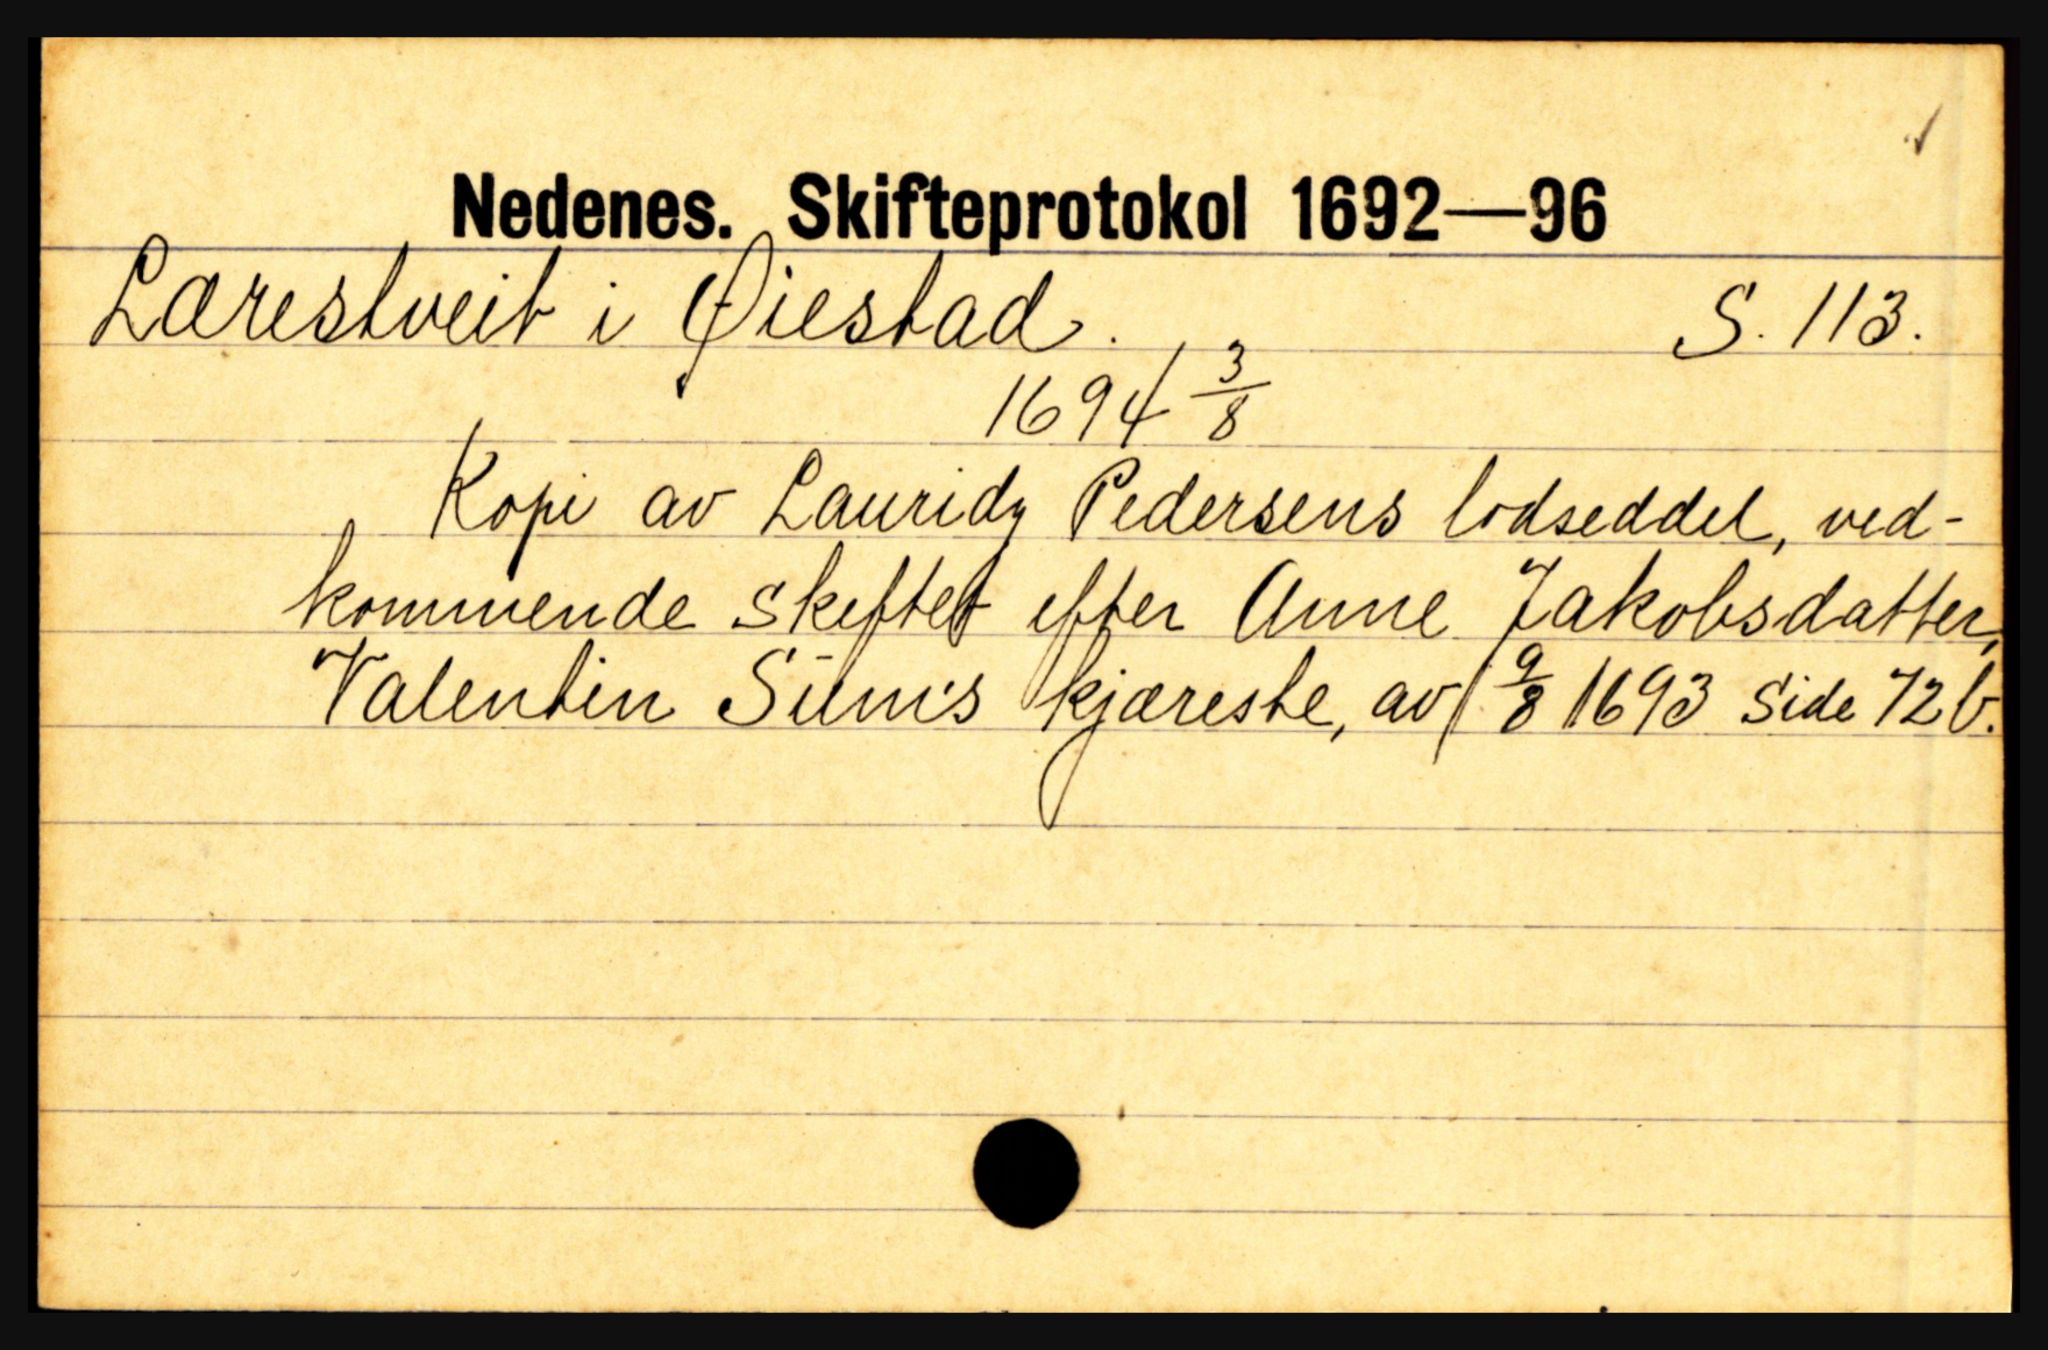 Nedenes. Skifteprotokol 1692—96
Lærestveit i Øiestad. S. 113.
1694 3/8
Kopi av Lauridz Pedersens lodseddel, ved-
kommende skiftet efter Anne Jakobsdatter,
Valentin Sūm's kjæreste, av 9/8 1693 Side 72 b.